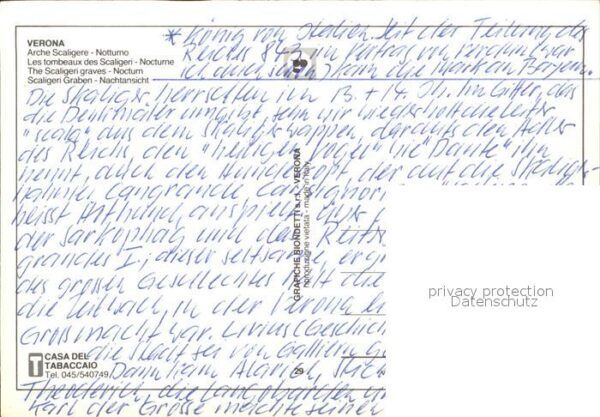 VERONA
Arche Scaligere - Notturno
Les tombeaux des Scaligeri - Nocturne
The Scaligeri graves - Nocturn
Scaligeri Graben - Nachtansicht
* König von Italien. Seit der Teilung des
Reiches 843 im Vertrag von Verdun war
kam die Mark an Bayern.
Die Skaliger herrschten im 13. + 14. Jh. Im Gitter, das
die Denkmäler umgibt, sehn wir wiederholt die Leiter
"scala" aus dem Skaligerwappen, darauf den Adler
des Reichs, den "heiligen Vogel" wie Dante ihn
nennt, auch den Hundekopf, der auf die Skaliger-
namen Cangrande, Cansignorio
heisst
der Sarkophag und der Reiter
grandes I; dieser seltsam
des großen Geschlechtes die
die Zeit wach, in der Verona
Großmacht war. Livius (Geschich
die Stadt sei von Galliern
Dann kam Alarich,
Theoderich, die Langobarden
Karl der Große machte seinen
GRAFICHE BIONDETTI s.r.l. - VERONA
riproduzione vietata - made in Italy
29
privacy protection
Datenschutz
T CASA DEL
TABACCAIO
Tel. 045/540749